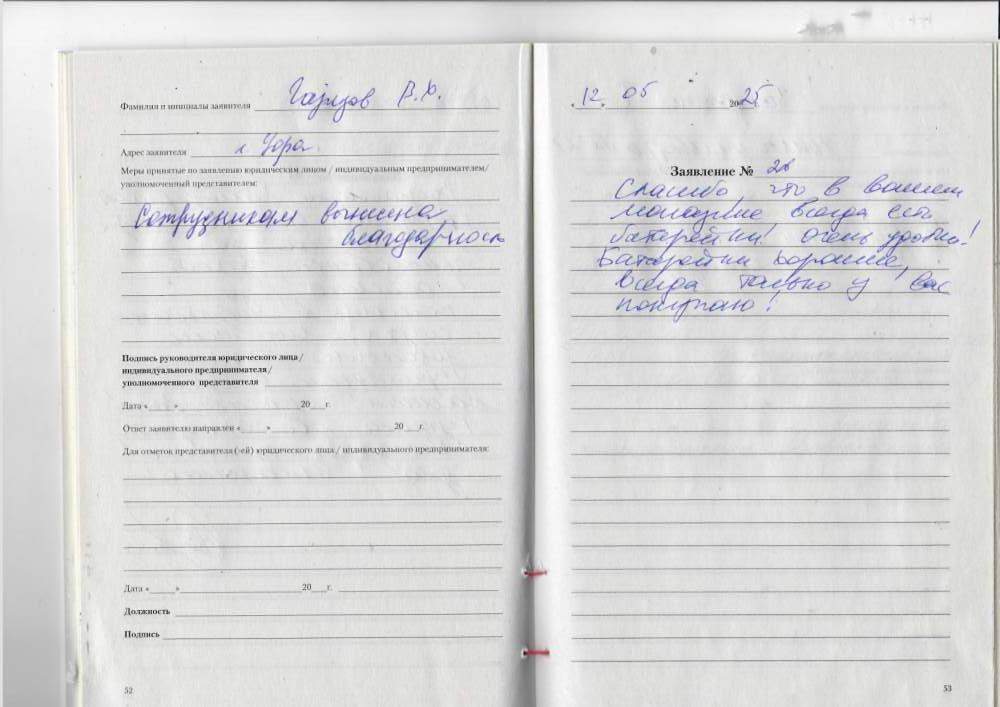 Фамилия и инициалы заявителя В.Х.
Адрес заявителя г. Уфа.
Меры принятые по заявлению юридическим лицом / индивидуальным предпринимателем/
уполномоченный представителем:
Сотрудникам
благодарность
Подпись руководителя юридического лица /
индивидуального предпринимателя /
уполномоченного представителя
Дата «____» 20___г.
Ответ заявителю направлен «____» 20___г.
Для отметок представителя (-ей) юридического лица / индивидуального предпринимателя:
Дата «____» 20___г.
Должность
Подпись
52
«12» 05 2025
Заявление № 26
Спасибо, что в вашем
магазине всегда есть
батарейки! Очень удобно!
Батарейки хорошие,
всегда только у вас
покупаю!
53